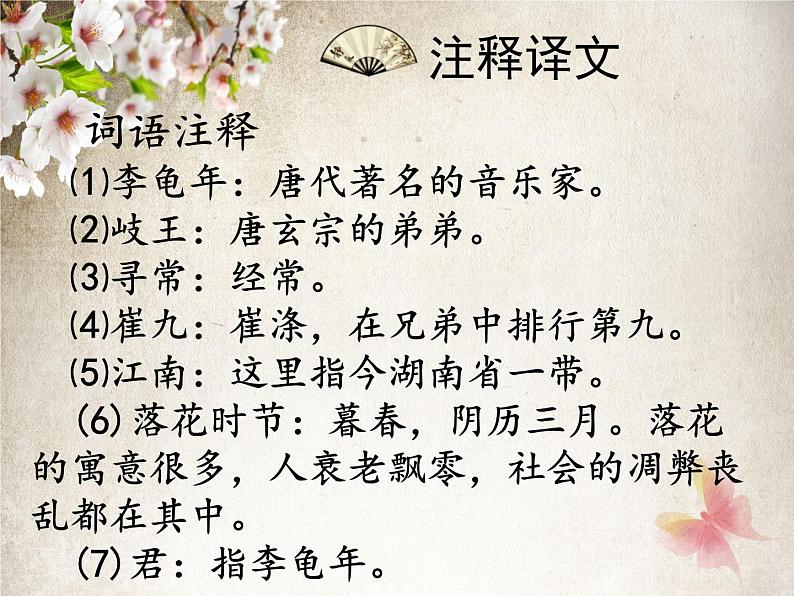 注释译文
词语注释
⑴李龟年：唐代著名的音乐家。
⑵岐王：唐玄宗的弟弟。
⑶寻常：经常。
⑷崔九：崔涤，在兄弟中排行第九。
⑸江南：这里指今湖南省一带。
(6)落花时节：暮春，阴历三月。落花
的寓意很多，人衰老飘零，社会的凋弊丧
乱都在其中。
(7)君：指李龟年。